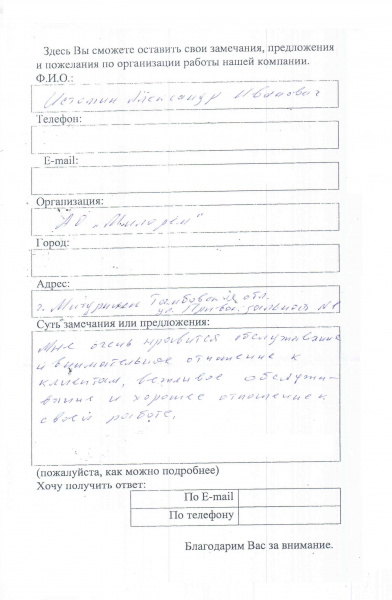 Здесь Вы сможете оставить свои замечания, предложения
и пожелания по организации работы нашей компании.
Ф.И.О.:
Истомин Александр Иванович
Телефон:
E-mail:
Организация:
АО „Милорем"
Город:
Адрес:
г. Мичуринск Тамбовская обл.
ул. Привокзальная №1
Суть замечания или предложения:
Мне очень нравится обслуживание
и внимательное отношение к
клиентам, вежливое обслужи-
вание и хорошее отношение к
своей работе.
(пожалуйста, как можно подробнее)
Хочу получить ответ:
По E-mail
По телефону
Благодарим Вас за внимание.